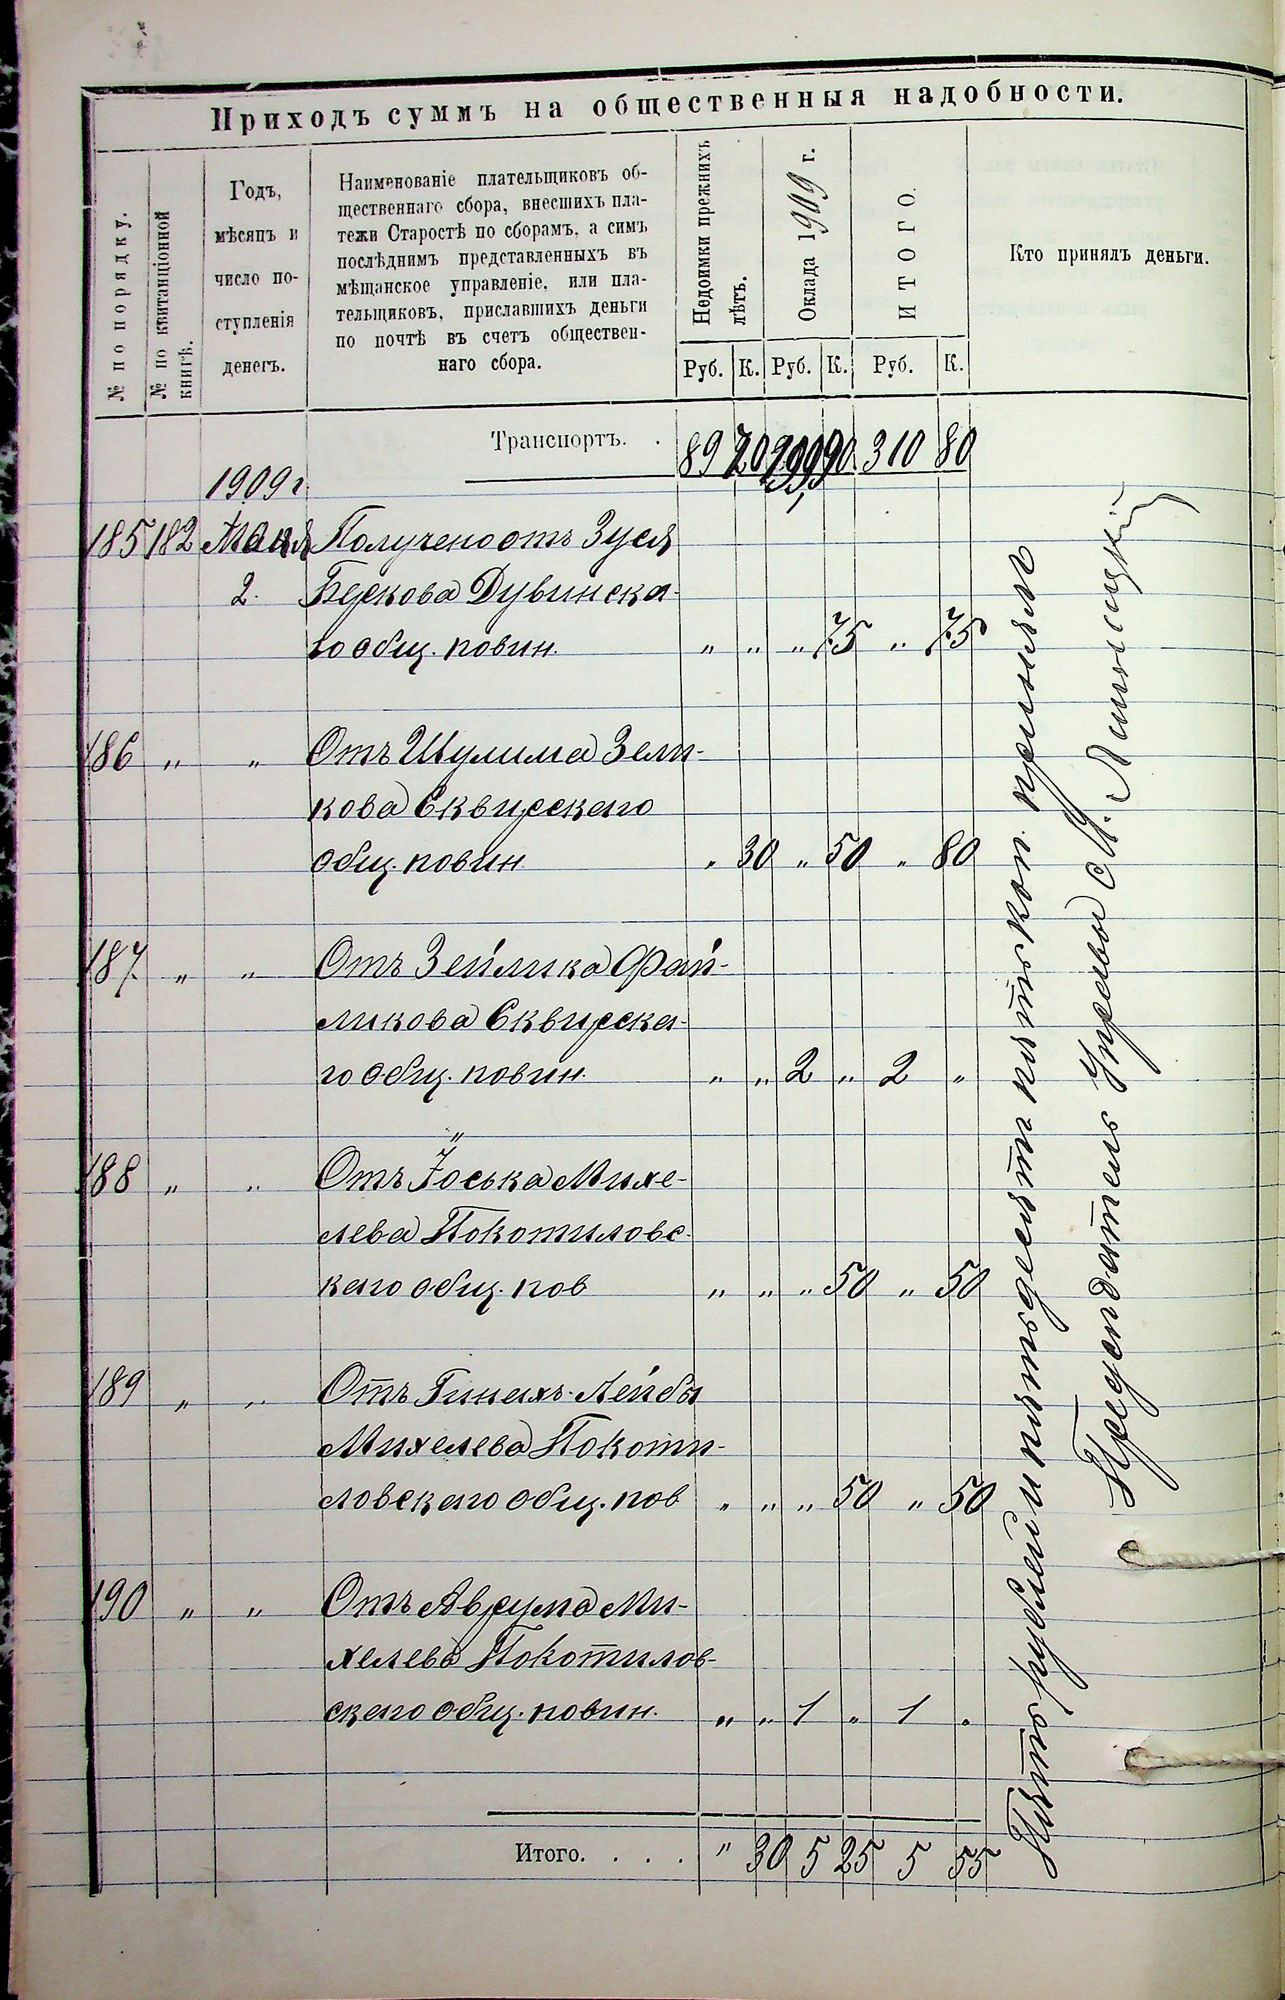 Приходъ суммъ на общественныя надобности.
№ по порядку.
№ по квитанціонной
книгѣ.
Годъ,
мѣсяцъ и
число по-
ступленія
денегъ.
Наименованіе плательщиковъ об-
щественнаго сбора, внесшихъ пла-
тежи Старостѣ по сборамъ, а симъ
послѣднимъ представленныхъ въ
мѣщанское управленіе, или пла-
тельщиковъ, приславшихъ деньги
по почтѣ въ счетъ обществен-
наго сбора.
Недоимки прежнихъ
лѣтъ.
Оклада 1909 г.
ИТОГО.
Кто принялъ деньги.
Руб. К. Руб. К. Руб. К.
Транспортъ. . 89 70 299 90 310 80
1909 г.
185 182 Маия Получено отъ Зуся
2. Беркова Дувинска-
го общ. повин. " " " 75 " 75
186 " " Отъ Шулима Зели-
кова Сквирскаго
общ. повин " 30 " 50 " 80
187 " " Отъ Зейлика Фай-
ликова Сквирска-
го общ. повин. " " 2 " 2 "
188 " " Отъ Іоська Михе-
лева Покотиловс-
каго общ. пов " " " 50 " 50
189 " " Отъ Пинахъ-Лейбы
Михелева Покоти-
ловскаго общ. пов " " " 50 " 50
190 " " Отъ Аврума Ми-
хелева Покотилов-
скаго общ. повин. " " 1 " 1 "
Итого. . . . " 30 5 25 5 55
Пять рублей и пятьдесят пять коп принялъ
Председатель Управы М.